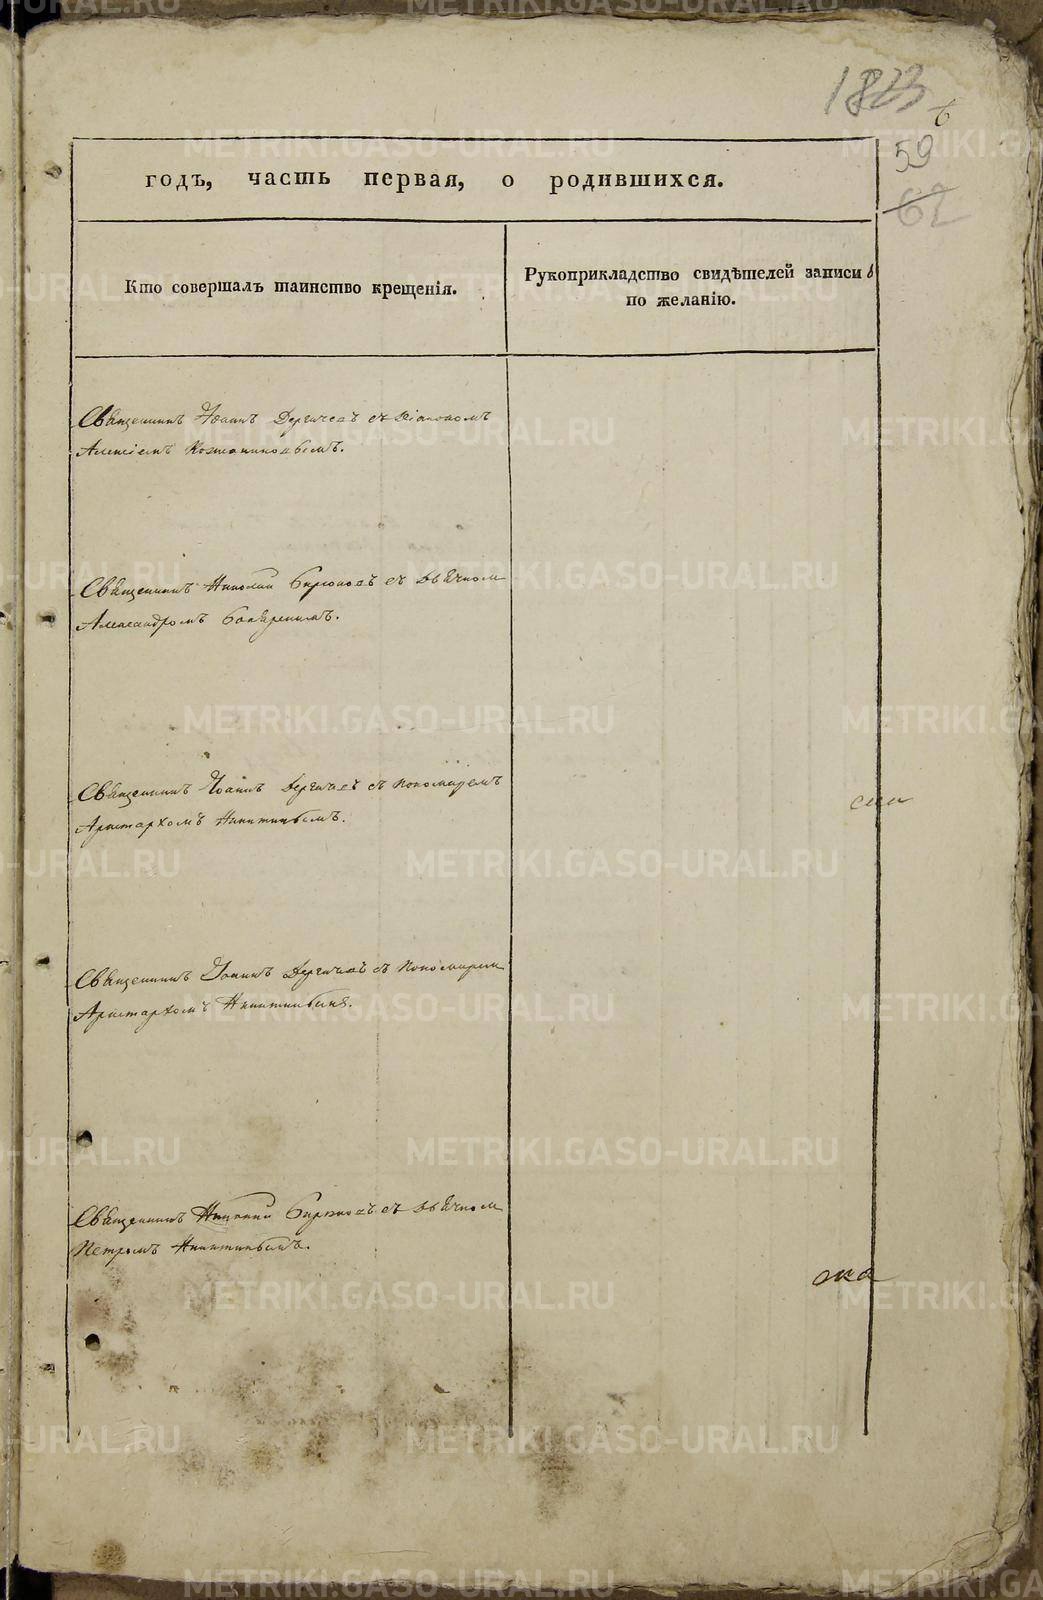 59
62
годъ, часть первая, о родившихся.
Кто совершалъ таинство крещенія.
Рукоприкладство свидѣтелей записи
по желанію.
Священникъ Іоаннъ Дергачевъ съ Діакономъ
Алексіемъ
Священникъ Николай Бирюковъ съ Дьячком
Александромъ Боляренимъ.
Священникъ Іоаннъ Дергачевъ съ Пономаремъ
Аристархомъ Никитинымъ.
Священникъ Іоаннъ Дергачевъ съ Пономарем
Аристархомъ Никитинымъ.
Священникъ Николай Бирюковъ съ Дьячком
Петромъ Никитинымъ.
METRIKI.GASO-URAL.RU